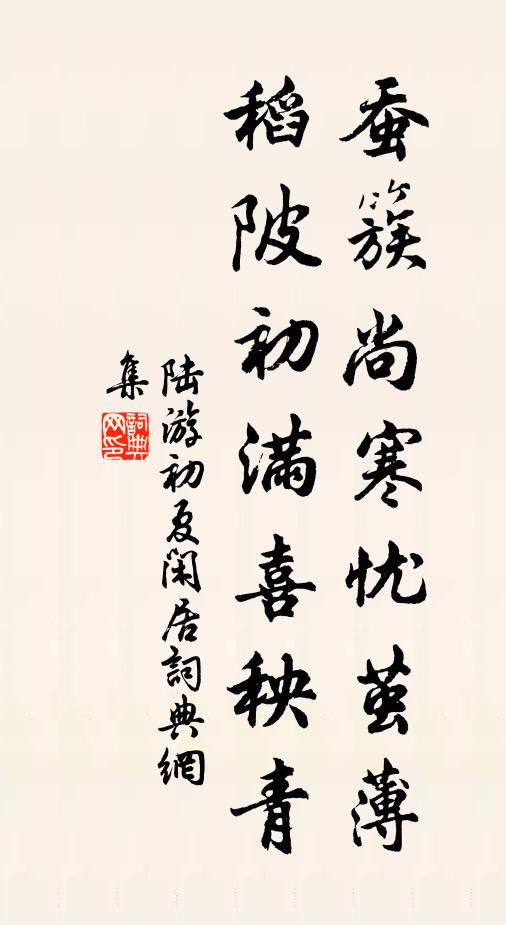 蚕簇尚寒忧茧薄
稻陂初满喜秧青
陆游初夏闲居詞典網
集
詞典
网印